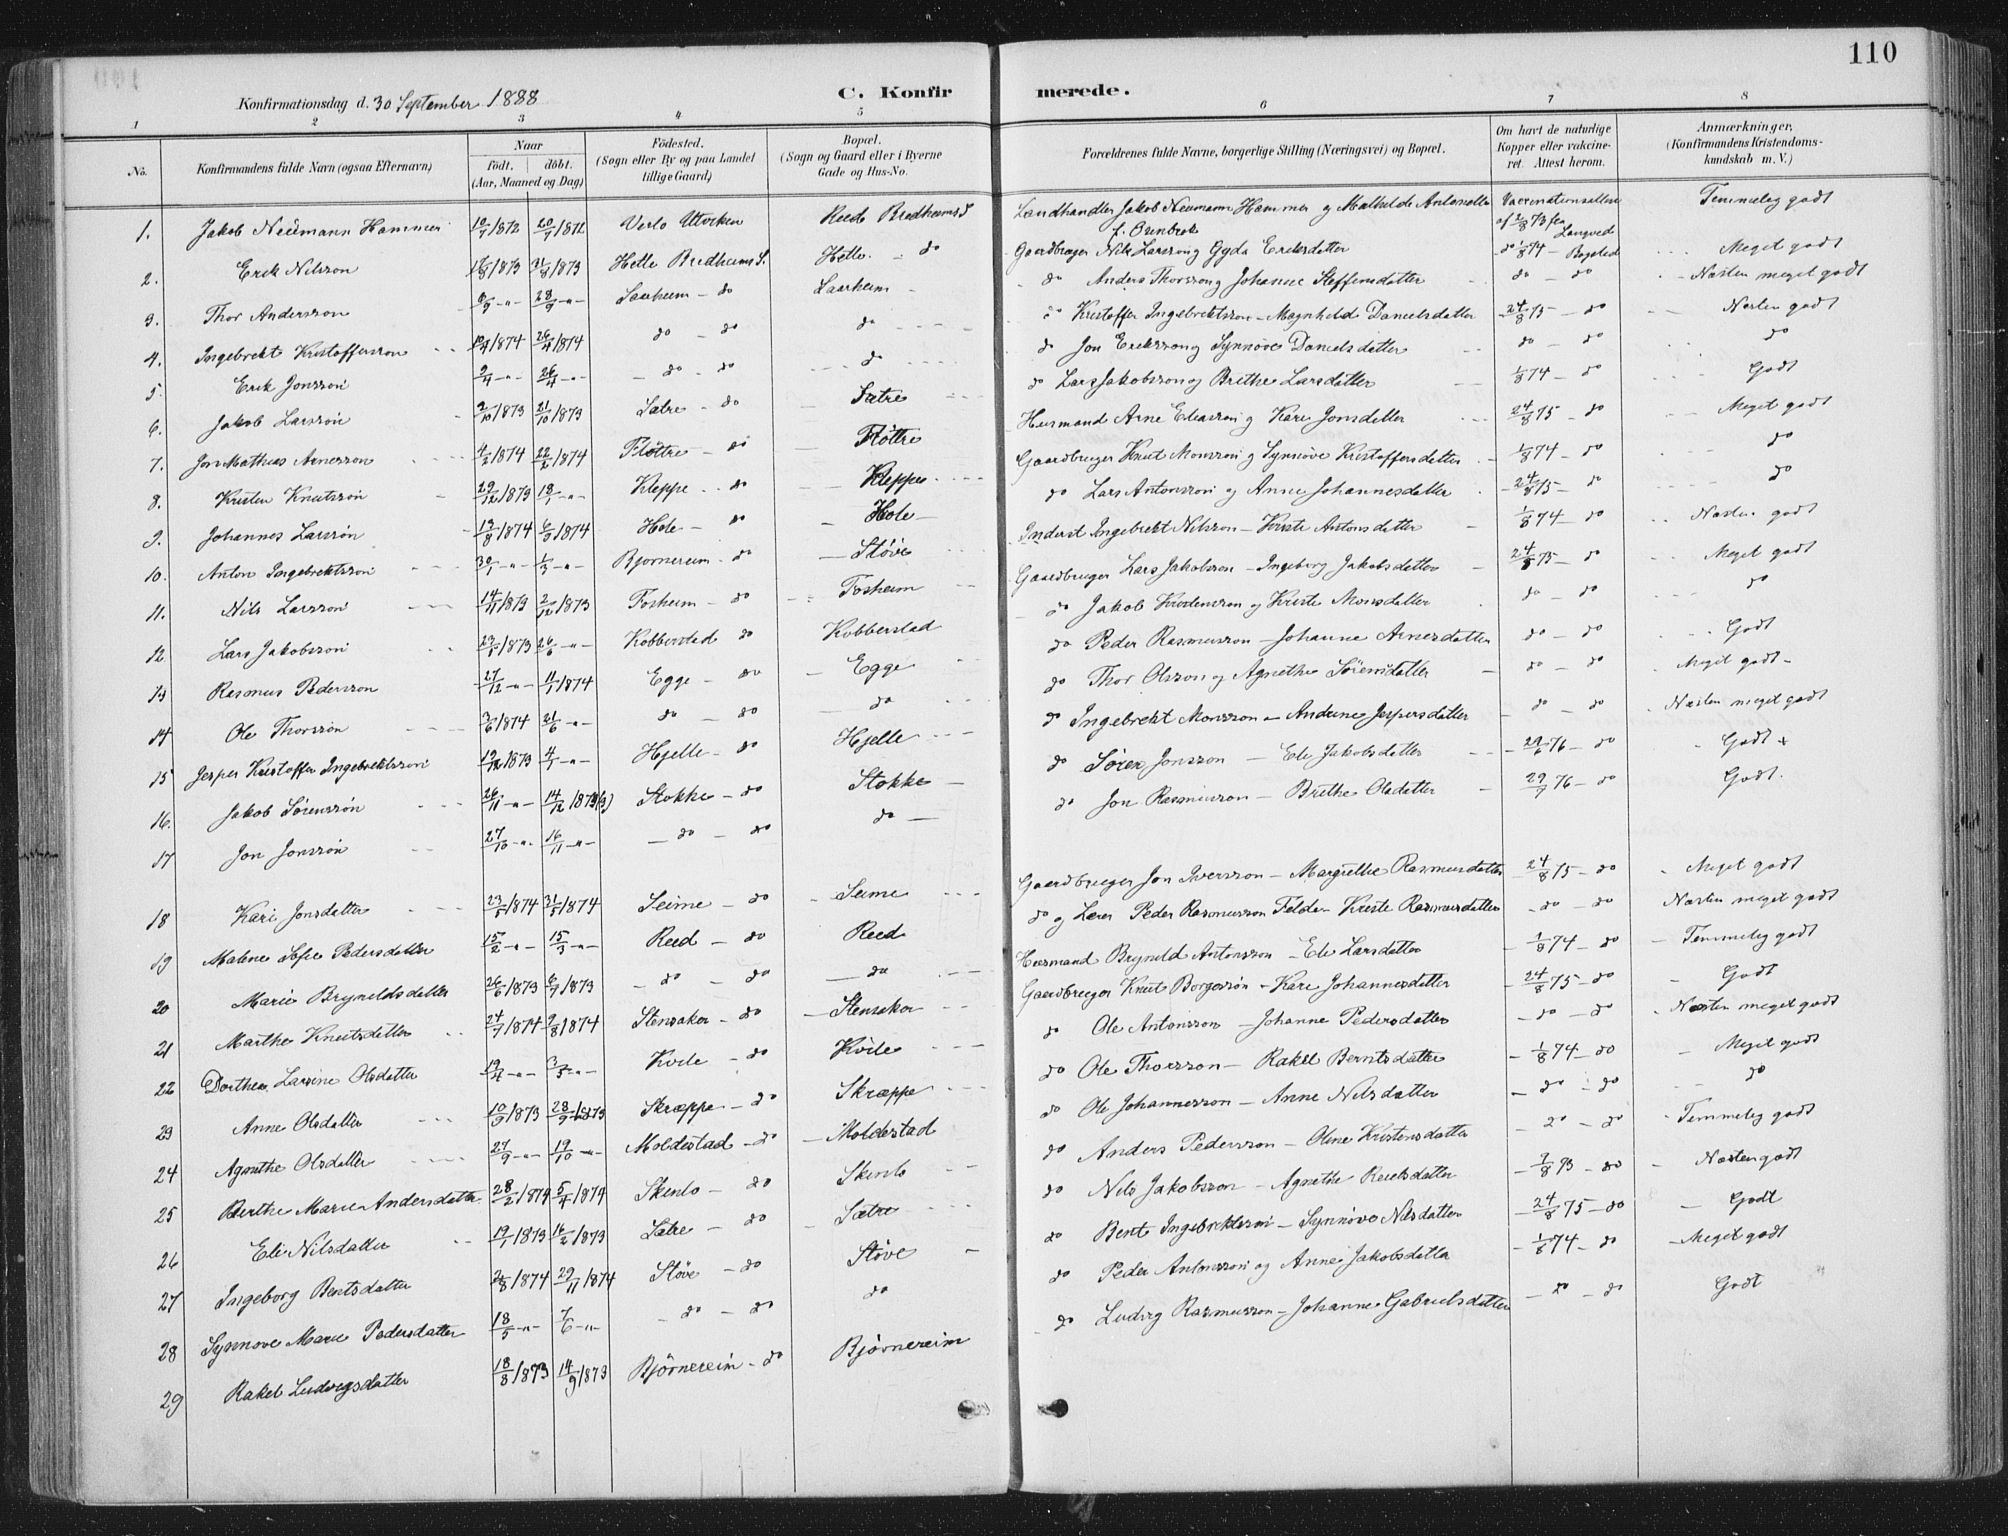 110
Konfirmationsdag d. 30 September 1888
C. Konfir merede.
1 2 3 4 5 6 7 8
No. Konfirmandens fulde Navn (ogsaa Efternavn) Naar födt. döbt. (Aar, Maaned og Dag) Födested. (Sogn eller By og paa Landet tillige Gaard) Bopæl. (Sogn og Gaard eller i Byerne Gade og Hus-No. Forældrenes fulde Navne, borgerlige Stilling (Næringsvei) og Bopæl. Om havt de naturlige Kopper eller vakcineret. Attest herom. Anmærkninger, (Konfirmandens Kristendomskundskab m. V.)
1. Jakob Neümann Hammer 10/7 1872 20/7 1872 Verlo Utviken Reed Bredheims S Landhandler Jakob Neumann Hammer og Mathilde f. Vaccinationsattest af 2/8 73 fra Langved Temmelig godt
2. Erik Nilsson 17/8 1873 31/8 1873 Hette Bredheims S. Hette - do Gaardbruger Nils Larsson og Gyda Eriksdatter do 1/8 74 - Meget godt
3. Thor Andersson 6/9 -"- 28/9 -"- Saarheim - do Saarheim - do Anders Thorsson og Johanne Steffensdatter do - do Næsten meget godt
4. Ingebrekt Kristoffersson 12/4 1874 26/4 1874 do - do do do Kristoffer Ingebrektsson - Magnhild Danielsdatter 24/8 75 - do Næsten godt
5. Erik Jonsson 2/4 -"- 26/4 -"- do - do do do Jon Eriksson og Synnöve Danielsdatter do - do do
6. Jakob Larsson 2/10 1873 21/10 1873 Sætre - do Sætre do Lars Jakobsson og Brithe Larsdatter 1/8 74 - do Godt
7. Jon Mathias Arnesson 4/2 1874 22/2 1874 Flöttre - do Flöttre Husmand Arne Eliasson og Kari Jonsdatter 24/8 75 - do Meget godt
8. Kristen Knutsson 29/12 1873 18/1 -"- Kleppe - do Kleppe Gaardbruger Knut Monsson og Synnöve Kristoffersdatter 1/8 74 - do do
9. Johannes Larsson 13/8 1874 6/9 1874 Hole - do Hole do Lars Antonsson og Anne Johannesdatter 24/8 75 - do do
10. Anton Ingebrektsson 30/1 -"- 1/3 -"- Bjørnereim - do Støve Inderst Ingebrekt Nilsson - Kriste Antonsdatter 1/8 74 - do Næsten godt
11. Nils Larsson 14/11 1873 2/12 1873 Fosheim - do Fosheim Gaardbruger Lars Jakobsson - Ingeborg Jakobsdatter 24/8 75 - do Meget godt
12. Lars Jakobsson 1873 26/6 -"- Kobberstad do Kobberstad do Jakob Kristensson og Kriste Monsdatter do - do do
13 Rasmus Pedersson 27/12 -"- 11/1 1874 Egge - do Egge do Peder Rasmusson - Johanne Arnesdatter do - do Godt
14 Ole Thorsson 3/6 1874 21/6 -"- do - do do do Thor Olsson og Agnethe Sörensdatter do - do Meget godt
15 Jesper Kristoffer Ingebrektsson 19/12 1873 4/1 -"- Hjelle - do Hjelle do Ingebrekt Monsson - Andrine Jespersdatter do - do Næsten meget godt
16. Jakob Sörensson 26/11 -"- 14/12 1873 Stokke - do Stokke do Sören Jonsson - Eli Jakobsdatter 29/6 76 - do Godt +
17 Jon Jonsson 27/10 -"- 16/11 -"- do - do do do Jon Rasmusson - Brithe Olsdatter 29/7 76 - do Godt.
18 Kari Jonsdatter 23/5 1874 31/5 1874 Seime - do Seime Gaardbruger Jon Iversson - Margrethe Rasmusdatter 24/8 75 - do Meget godt
19 Malene Sofie Pedersdatter 15/2 -"- 15/3 -"- Reed - do Reed do og Lærer Peder Rasmusson Felde - Kriste Rasmusdatter do - do Næsten meget godt
20 Marie Brynildsdatter 26/6 1873 6/7 1873 do - do do Husmand Brynild Antonsson - Eli Larsdatter 1/8 74 - do Temmelig godt
21 Marthe Knutsdatter 24/7 1874 9/8 1874 Stensaker - do Stensaker Gaardbruger Knut Borgersön - Kari Johannesdatter 24/8 75 - do Godt
22 Dorthea Larsine Olsdatter 19/4 -"- 3/5 -"- Kvile - do Kvile do Ole Antonsson - Johanne Pedersdatter do - do Næsten meget godt
23 Anne Olsdatter 10/9 1873 28/9 1873 Skræppe - do Skræppe do Ole Thorsson - Rakel Berntsdatter 1/8 74 - do Meget godt
24 Agnethe Olsdatter 27/9 -"- 19/10 -"- Moldestad - do Moldestad do Ole Johannesson - Anne Nilsdatter do - do do
25 Berthe Marie Andersdatter 28/2 1874 5/4 1874 Skinlo - do Skinlo do Anders Pedersson - Oline Kristensdatter do - do Temmelig godt
26 Eli Nilsdatter 19/1 1873 16/2 1873 Sætre - do Sætre do Nils Jakobsson - Agnethe 2/8 73 - do Næsten godt
27 Ingeborg Bentsdatter 1874 29/11 1874 Støve - do Støve do Bent Ingebrektsson - Synnöve Nilsdatter 24/8 75 - do Godt
28 Synnove Marie Pedersdatter 18/5 -"- 7/6 -"- do - do do do Peder Antonsson og Anne Jakobsdatter 1/8 74 - do Meget godt
29 Rakel Ludvigsdatter 18/8 1873 14/9 1873 Bjørnereim - do Bjørnereim do Ludvig Rasmusson - Johanne Gabrielsdatter do - do Godt